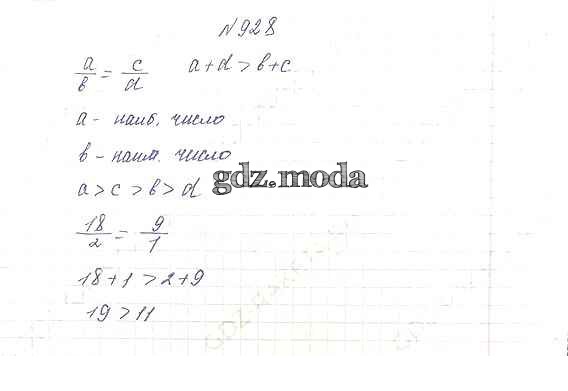 №928
a/в = c/d a+d>в+c
a - наиб. число
в - наим. число
a>c>в>d
gdz.moda
18/2 = 9/1
18+1>2+9
19>11